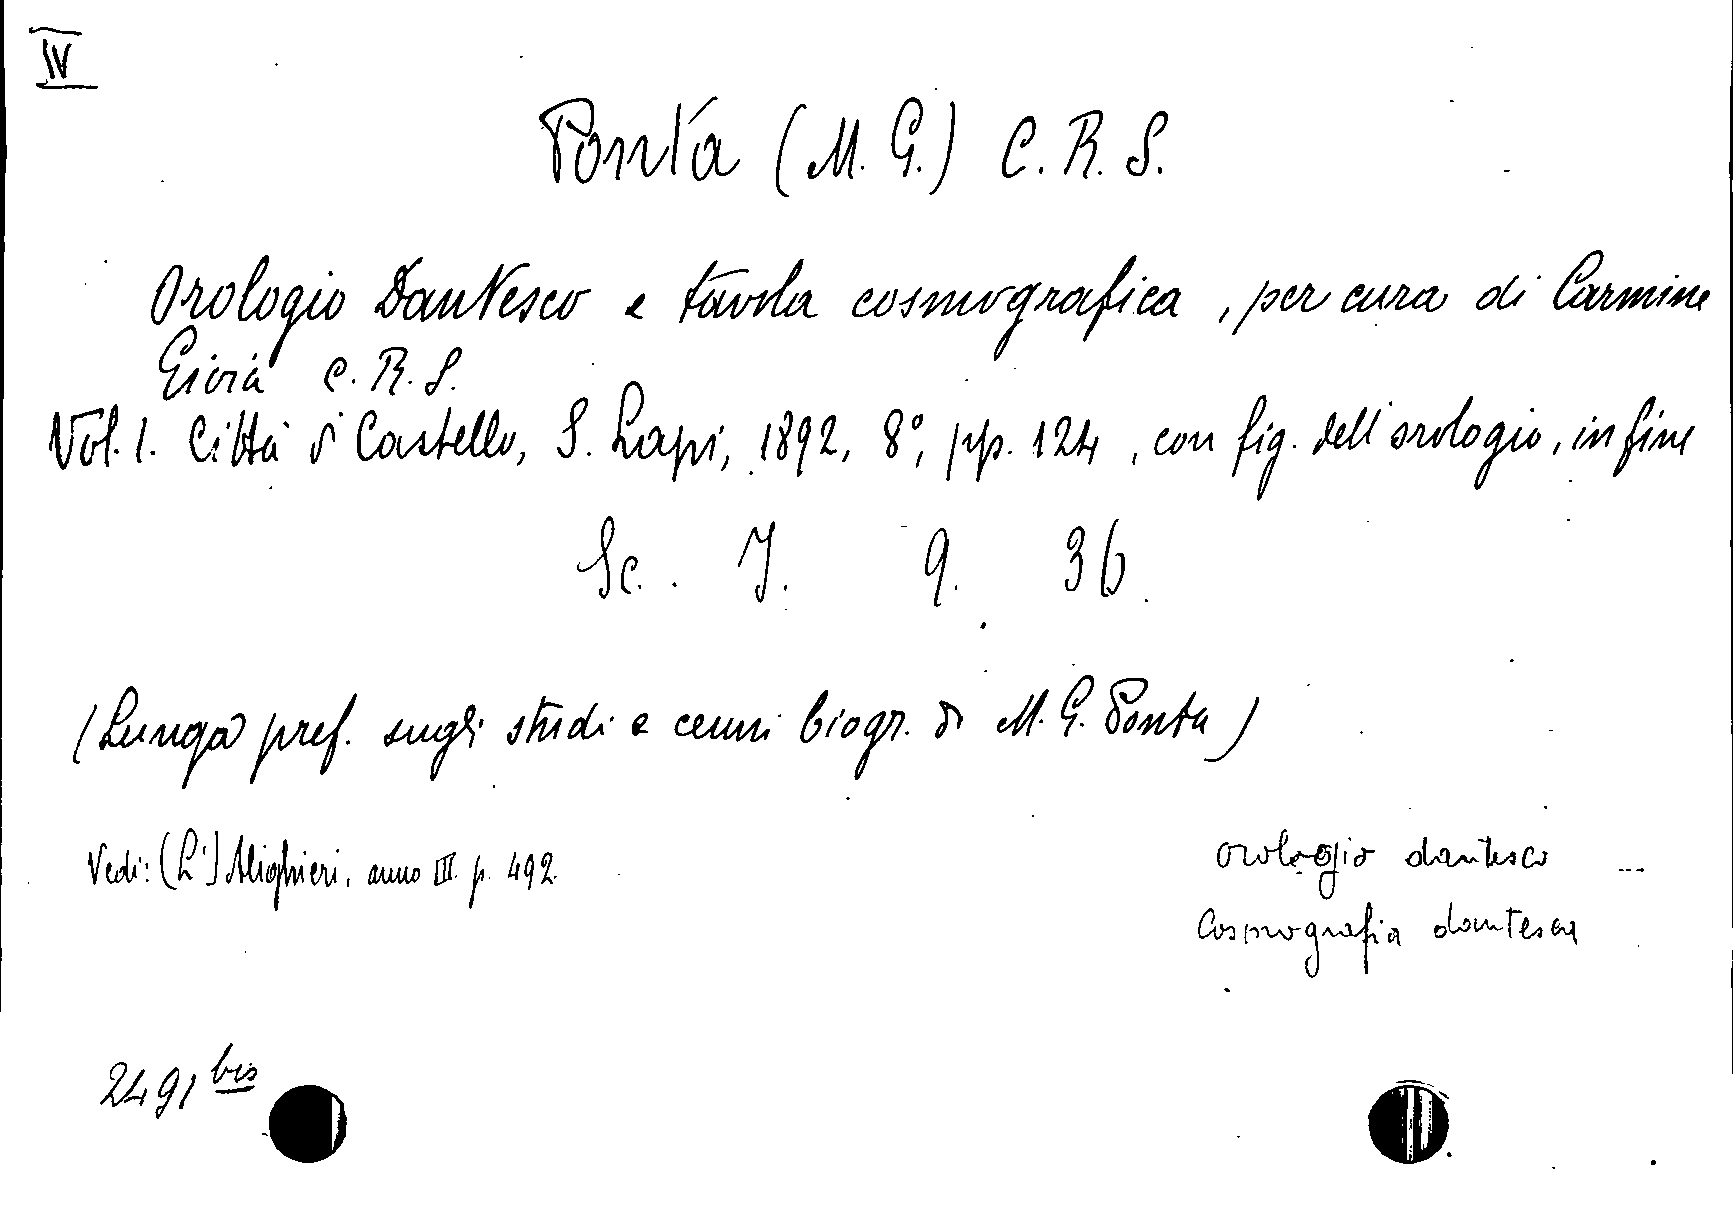 IV
Ponta (M. G.) C. R. S.
Orologio Dantesco e tavola cosmografica, per cura di Carmine
Gioia C. R. S.
Vol. 1. Città di Castello, S. Lapi, 1892, 8°, pp. 124, con fig. dell'orologio, in fine
Sc. I. 9. 36
(Lunga pref. sugli studi e cenni biogr. di M. G. Ponta)
Vedi: (L') Alighieri, anno III. p. 492
orologio dantesco
Cosmografia dantesca
2491 bis